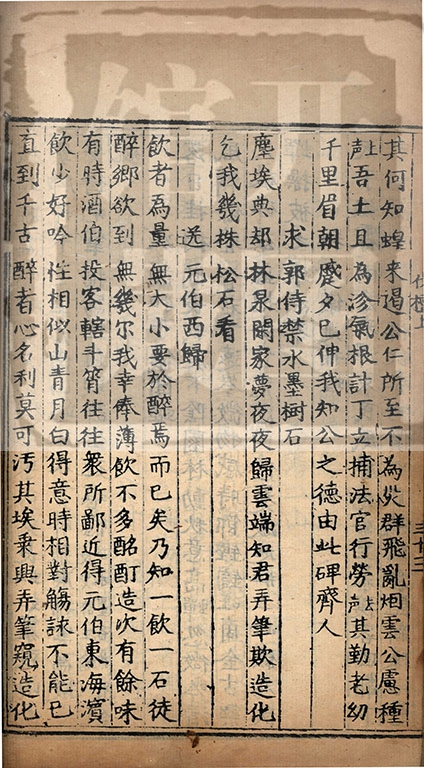 其何知蝗来遏公仁所至不為災群飛亂烟雲公慮種
上声吾土且為沴氣根計丁立捕法官行勞去声其勤老幼
千里眉朝蹙夕已伸我知公之德由此碑齊人
求郭侍禁水墨樹石
塵埃典却林泉閑家夢夜夜歸雲端知君弄筆欺造化
乞我幾株松石看
送元伯西歸
飲者為量無大小要於醉焉而已矣乃知一飲一石徒
醉鄉欲到無幾尔我幸俸薄飲不多酩酊造次有餘味
有時酒伯投客轄斗筲往往衆所鄙近得元伯東海濱
飲少好吟性相似山青月白得意時相對觴詠不能已
直到千古醉者心名利莫可汚其埃乗興弄筆窺造化
三十二